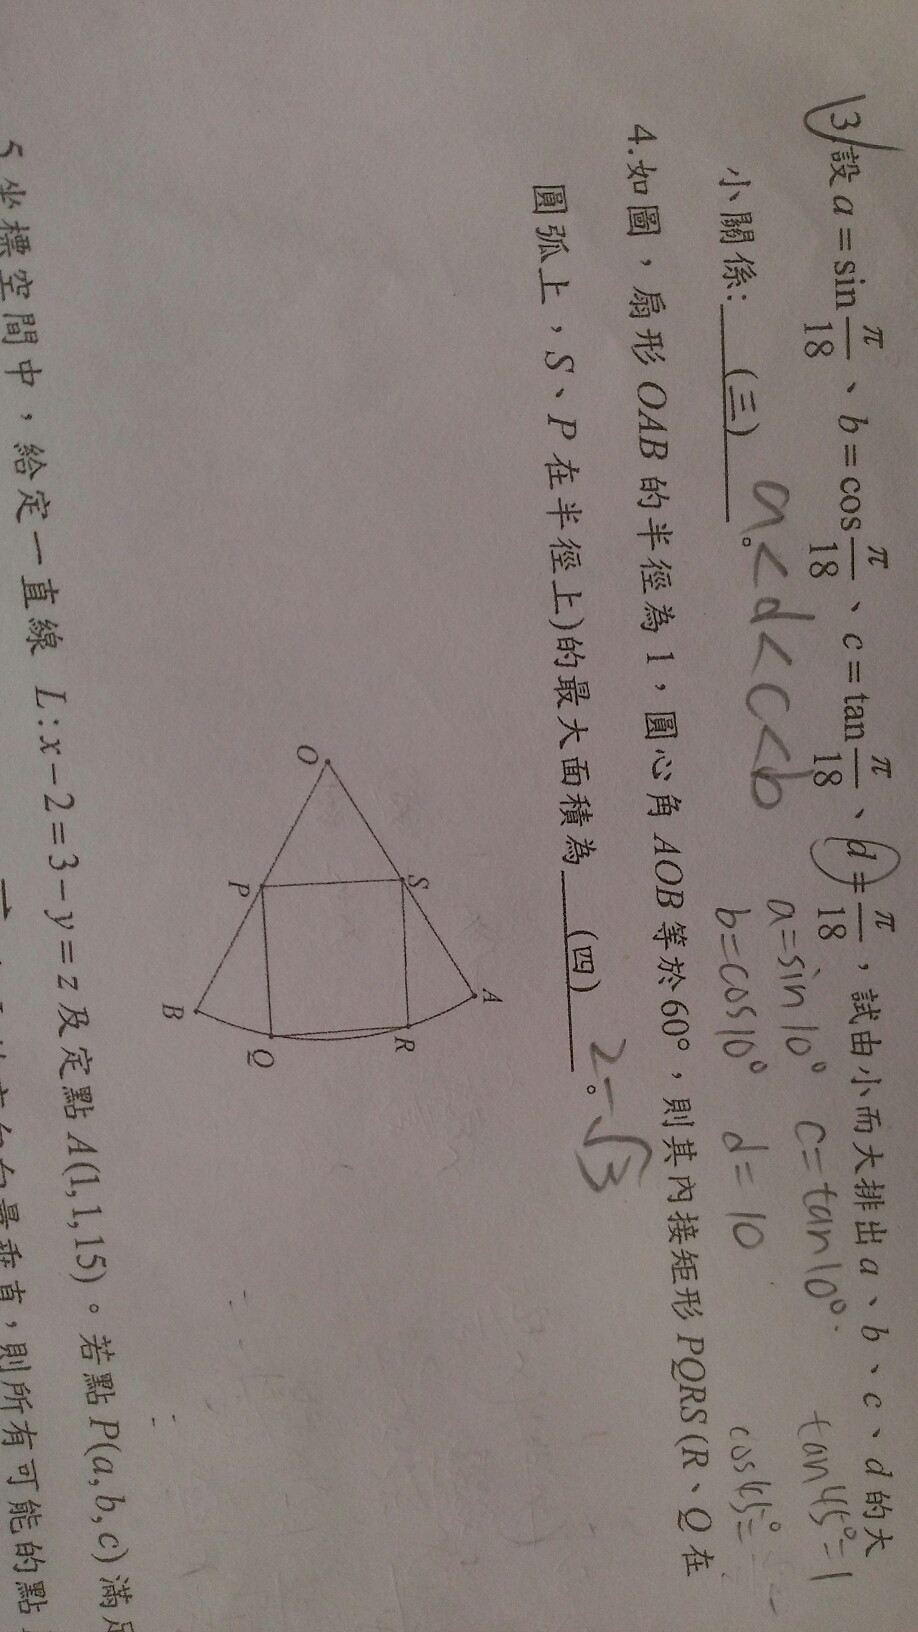 3 設 a=sin π/18、b=cos π/18、c=tan π/18、d=π/18，試由小而大排出 a、b、c、d 的大
小關係:(三)。
a<d<c<b
a=sin10° c=tan10°
b=cos10° d=10
tan45°=1
cos45°=
4.如圖，扇形OAB的半徑為1，圓心角AOB等於60°，則其內接矩形PQRS(R、Q在
圓弧上，S、P在半徑上)的最大面積為(四)。
2-√3
O
S
A
P
R
B
Q
5 坐標空間中，給定一直線 L:x-2=3-y=z及定點A(1,1,15)。若點P(a,b,c)滿足
垂直，則所有可能的點